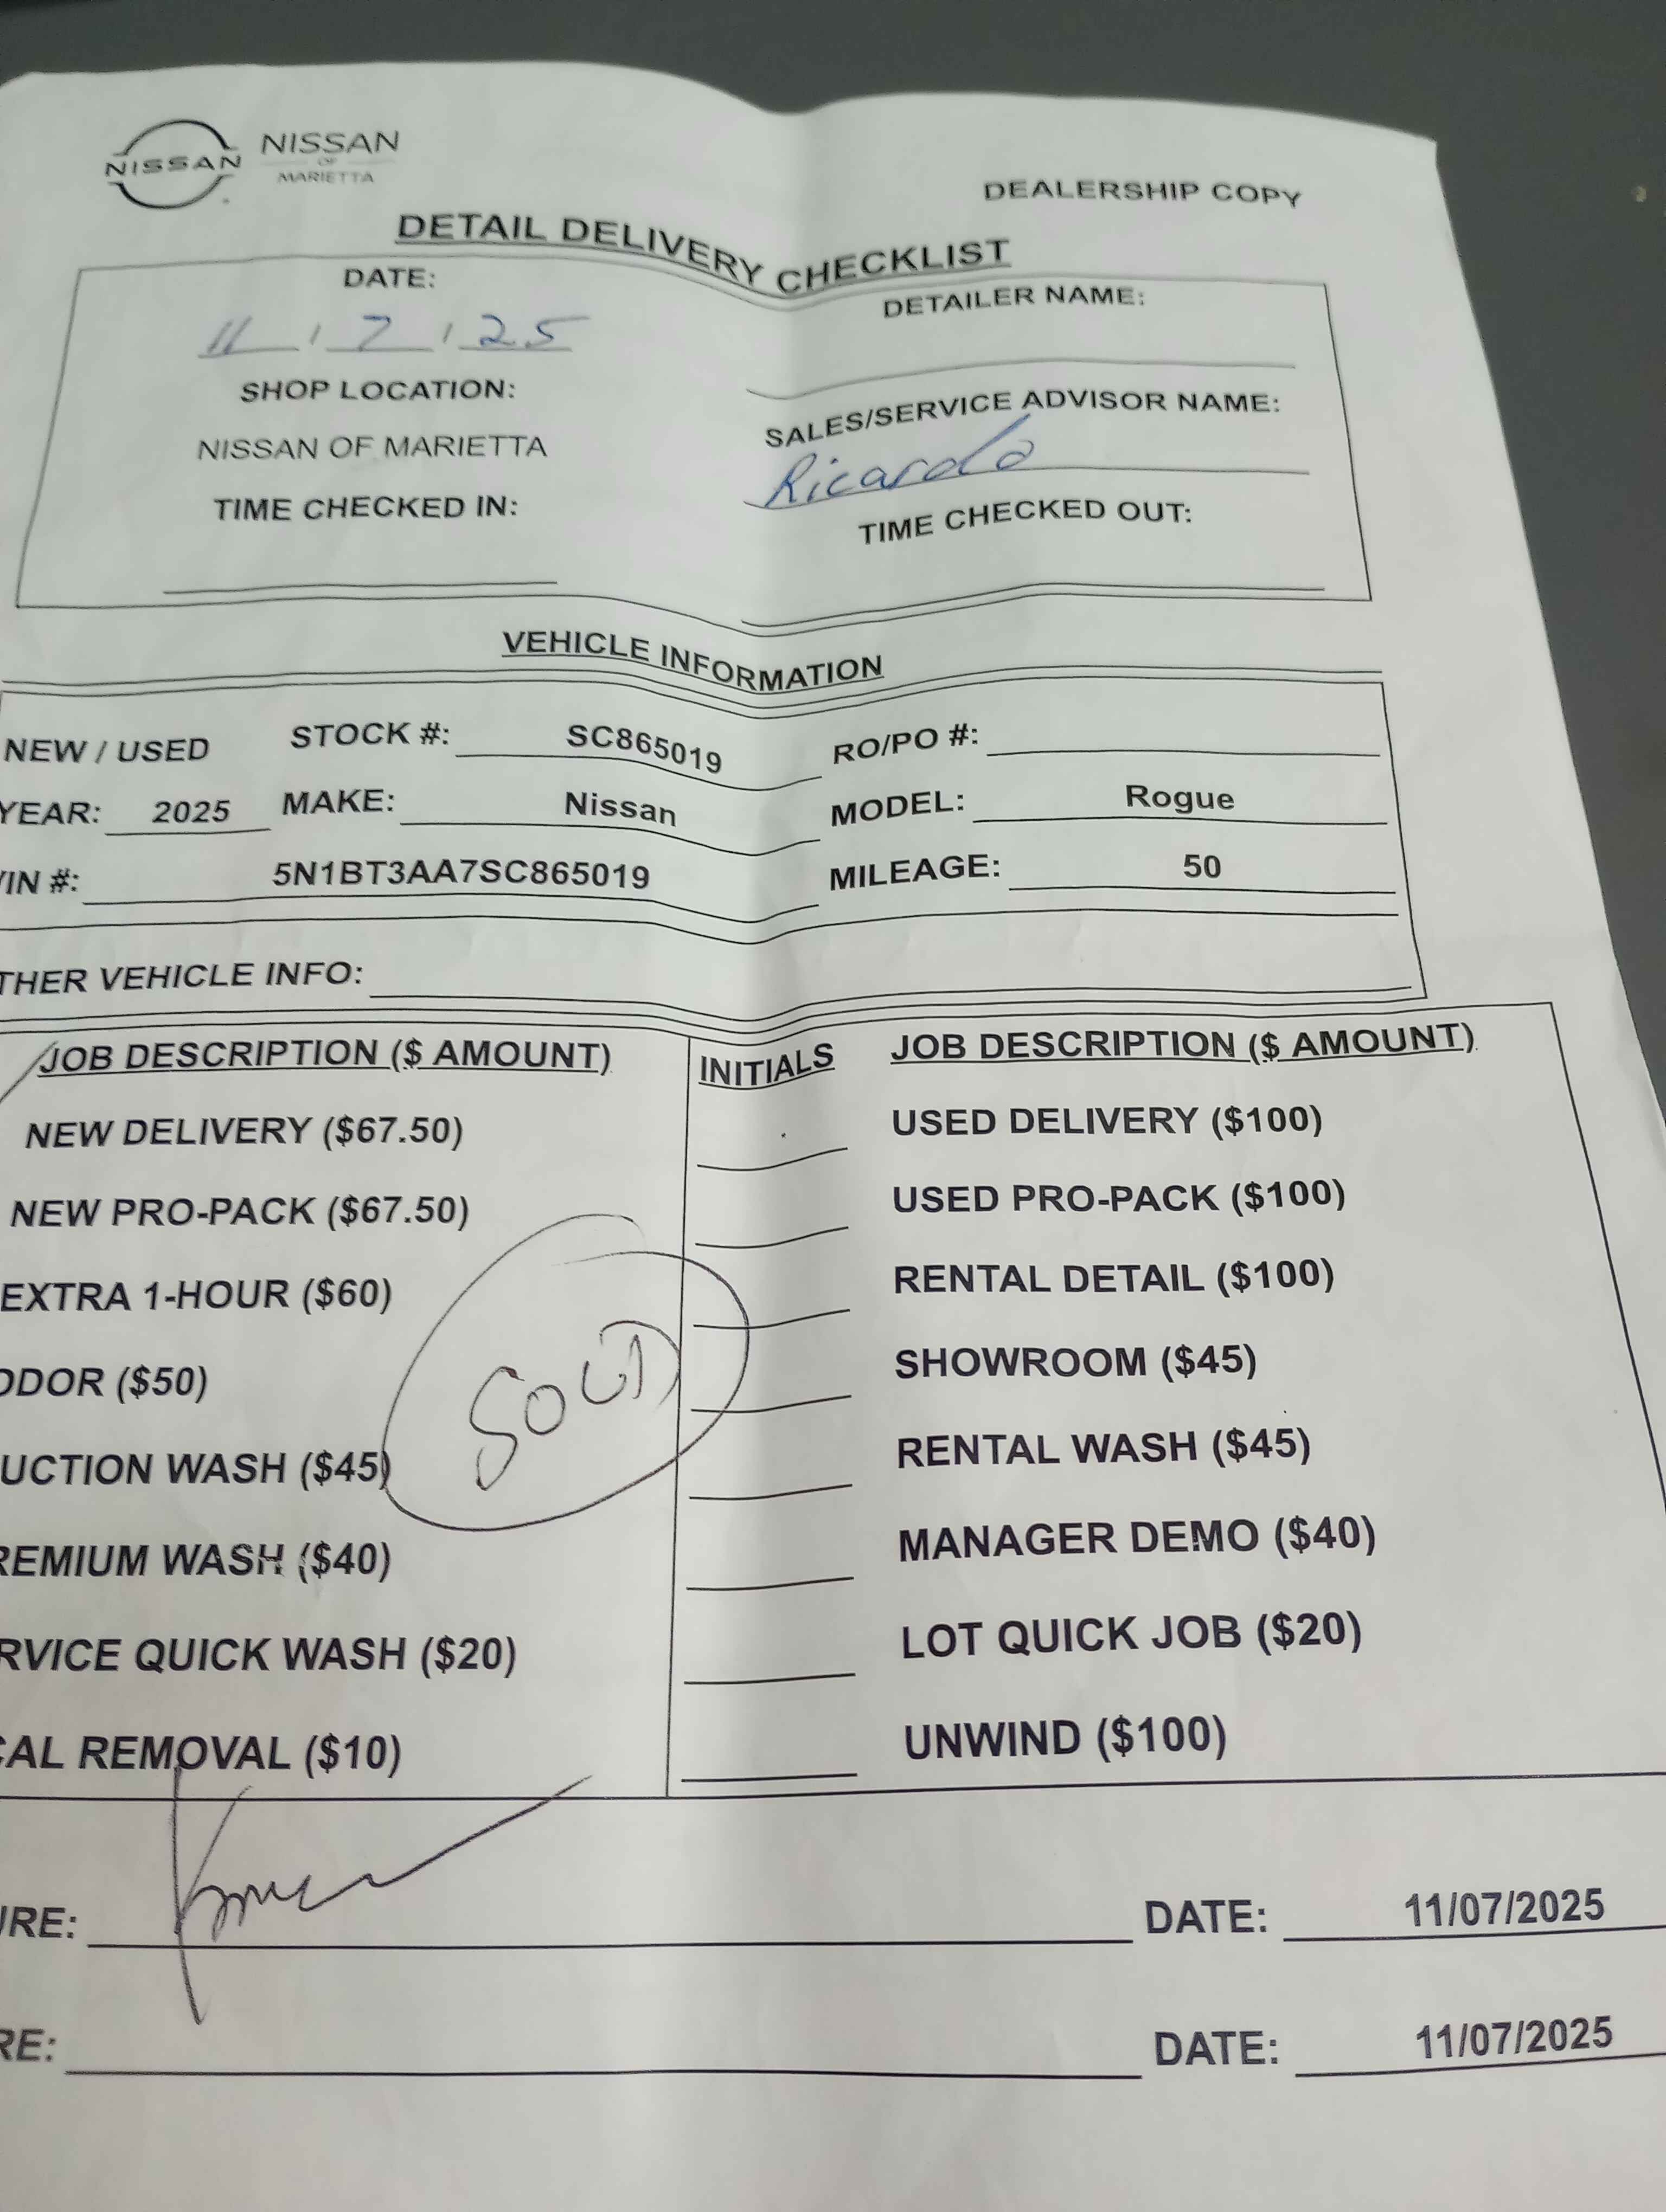 NISSAN
NISSAN
OF
MARIETTA
DEALERSHIP COPY
DETAIL DELIVERY CHECKLIST
DATE:
11 / 7 / 25
DETAILER NAME:
SHOP LOCATION:
NISSAN OF MARIETTA
SALES/SERVICE ADVISOR NAME:
Ricardo
TIME CHECKED IN:
TIME CHECKED OUT:
VEHICLE INFORMATION
NEW / USED STOCK #: SC865019 RO/PO #:
YEAR: 2025 MAKE: Nissan MODEL: Rogue
VIN #: 5N1BT3AA7SC865019 MILEAGE: 50
THER VEHICLE INFO:
JOB DESCRIPTION ($ AMOUNT) INITIALS JOB DESCRIPTION ($ AMOUNT)
NEW DELIVERY ($67.50) USED DELIVERY ($100)
NEW PRO-PACK ($67.50) USED PRO-PACK ($100)
EXTRA 1-HOUR ($60) RENTAL DETAIL ($100)
ODOR ($50) SHOWROOM ($45)
SOLD
UCTION WASH ($45) RENTAL WASH ($45)
REMIUM WASH ($40) MANAGER DEMO ($40)
RVICE QUICK WASH ($20) LOT QUICK JOB ($20)
CAL REMOVAL ($10) UNWIND ($100)
URE: DATE: 11/07/2025
RE: DATE: 11/07/2025